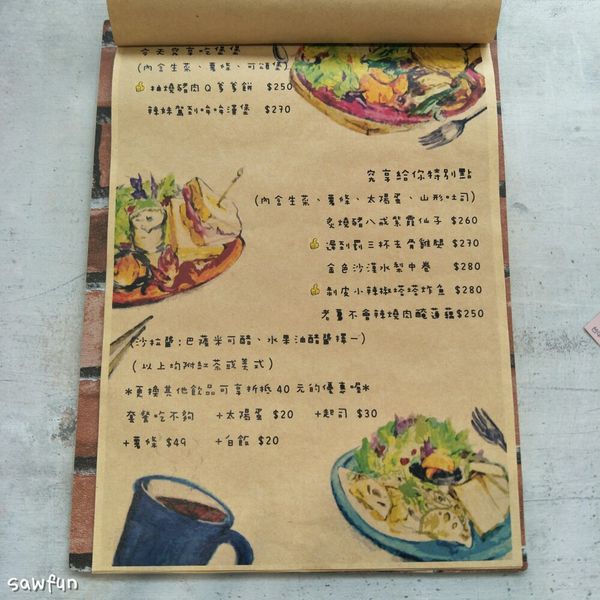 今天究享吃堡堡
(內含生菜、薯條、可頌堡)
抽煙豬肉Q爹爹餅 $250
辣妹駕到哈哈漢堡 $270
究享給你特別點
(內含生菜、薯條、太陽蛋、山形吐司)
炙燒豬八戒紫霞仙子 $260
遲到罰三杯去骨雞腿 $270
金色沙灘水梨中卷 $280
剝皮小辣椒塔塔炸魚 $280
老薑不會辣燒肉醃蓮藕$250
(沙拉醬:巴薩米可醋、水果油醋醬擇一)
(以上均附紅茶或美式)
*更換其他飲品可享折抵40元的優惠喔*
套餐吃不夠 +太陽蛋 $20 +起司 $30
+薯條 $49 +白飯 $20
sawfun